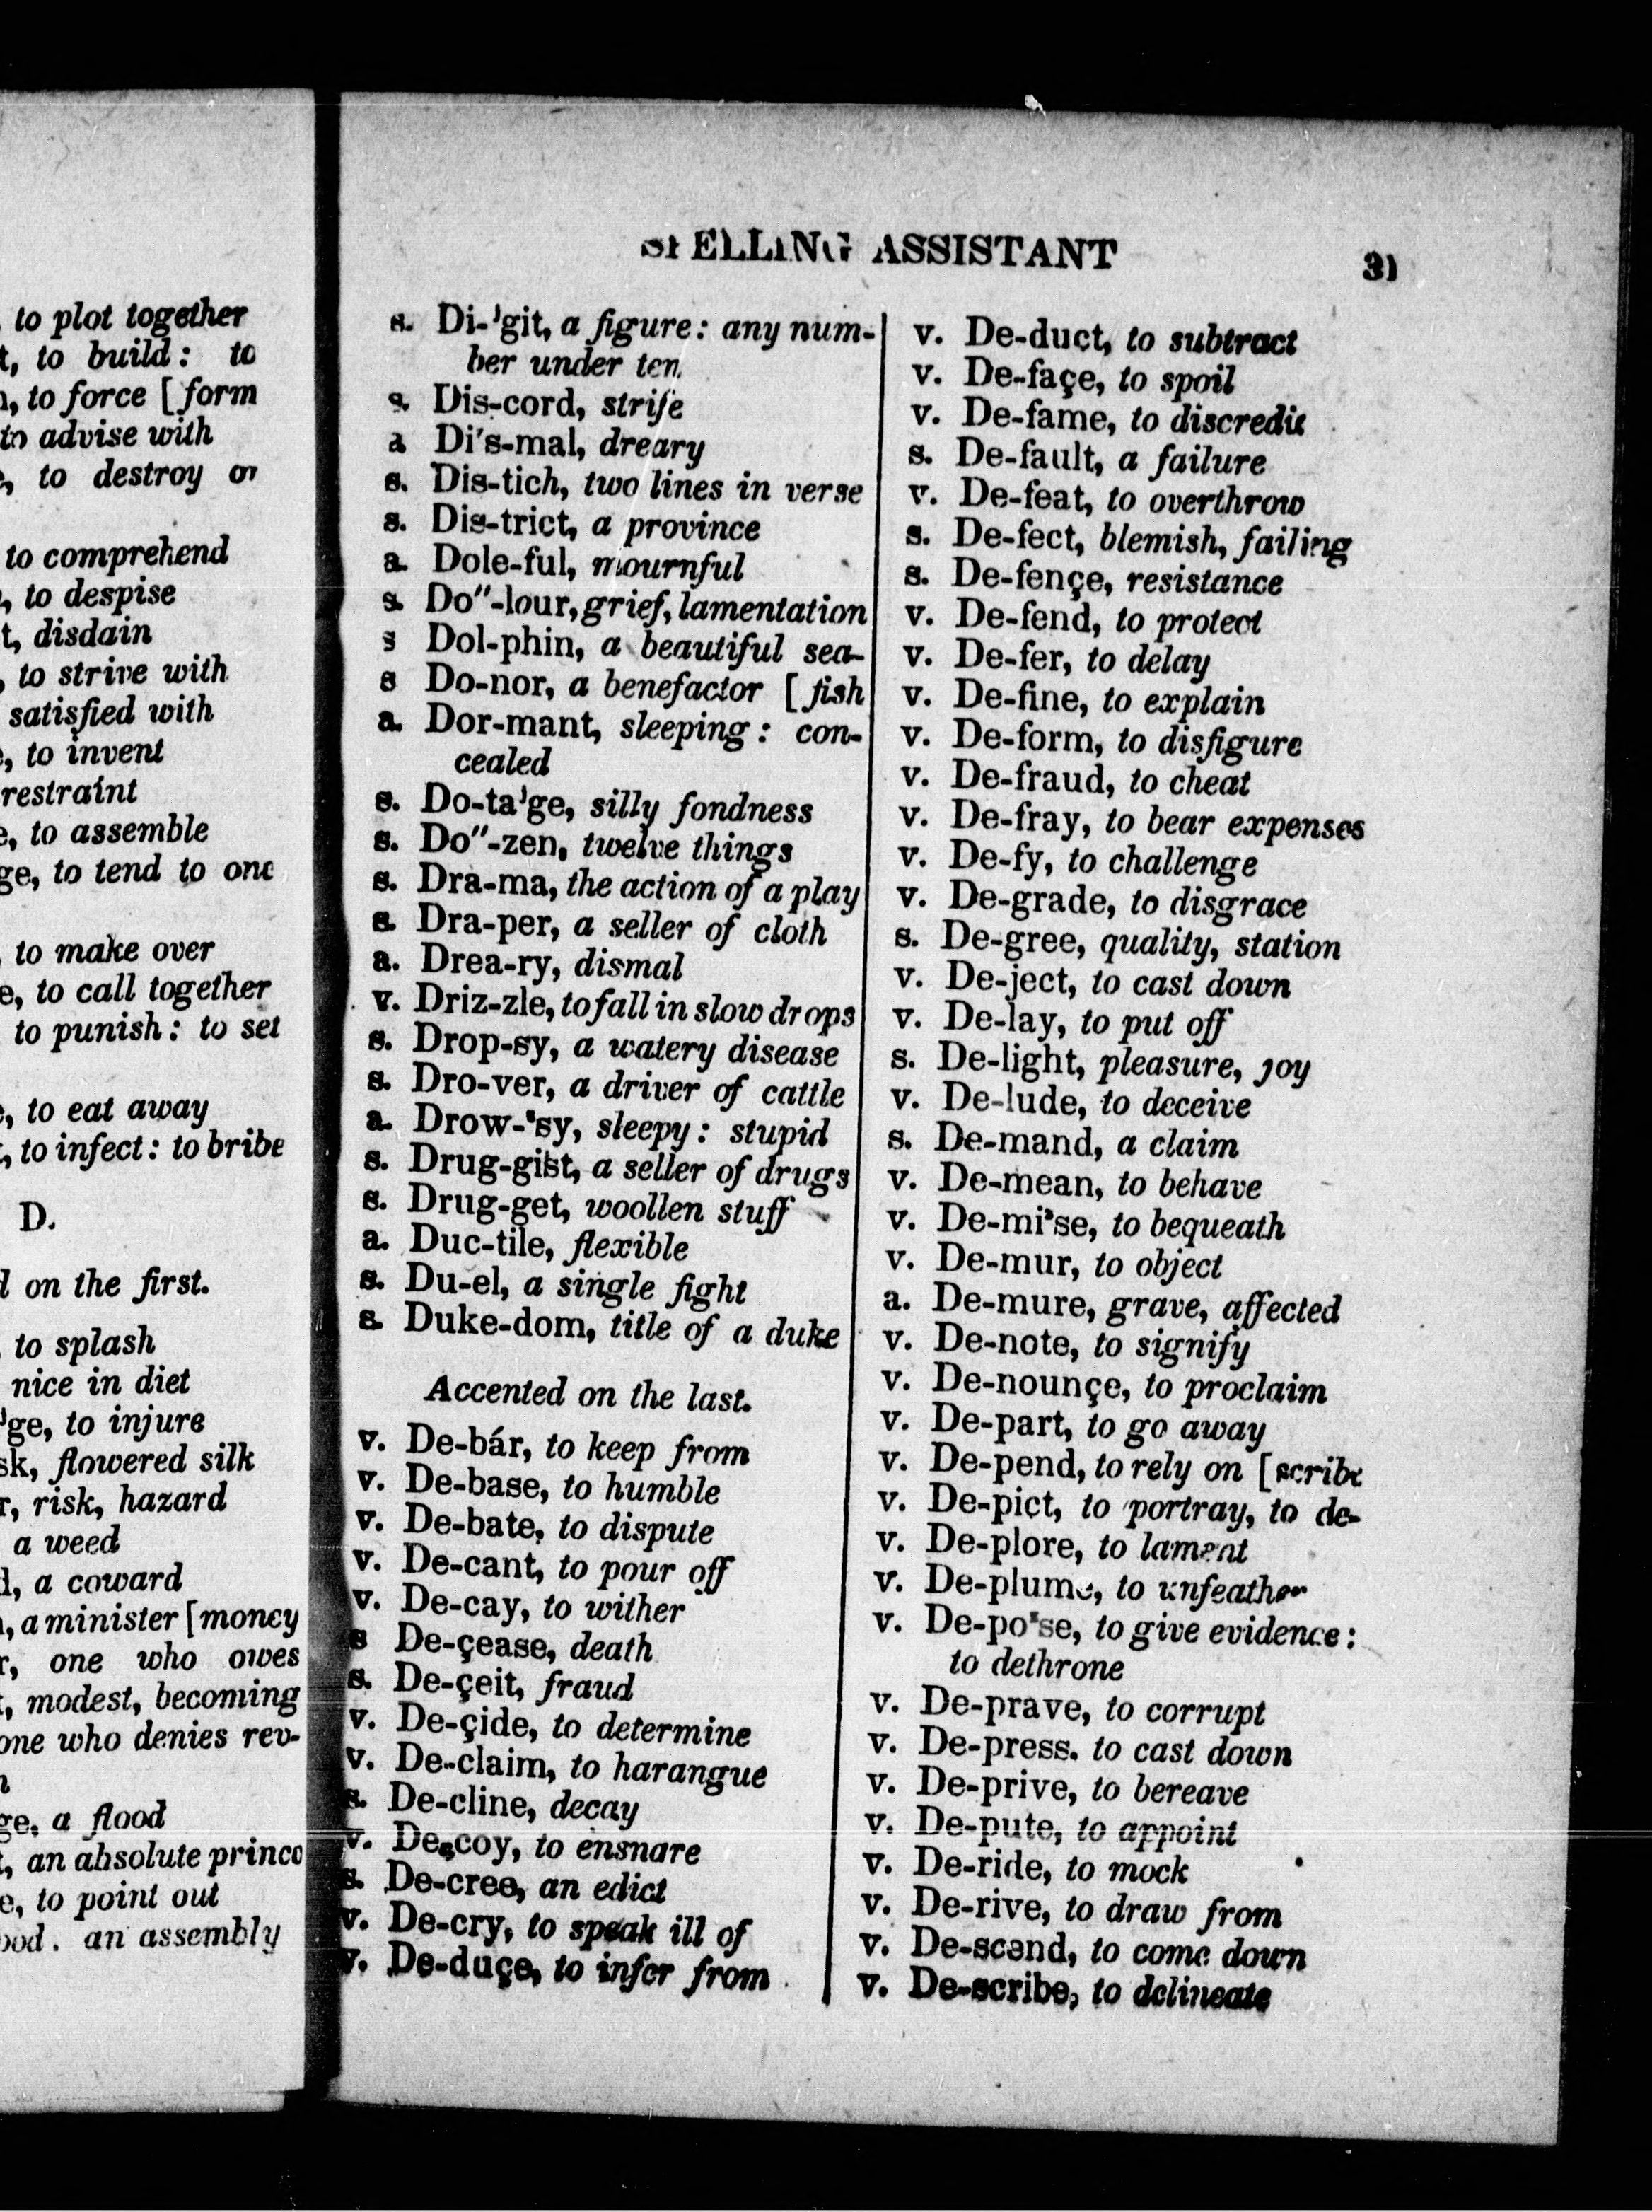 to plot together
to build: to
to force [form
advise with
to destroy or
to comprehend
to despise
disdain
to strive with
satisfied with
to invent
restraint
to assemble
to tend to one
to make over
to call together
to punish: to set
to eat away
to infect: to bribe
D.
on the first.
to splash
nice in diet
to injure
flowered silk
risk, hazard
a weed
a coward
a minister [money
one who owes
modest, becoming
one who denies rev-
a flood
an absolute prince
to point out
an assembly
SPELLING ASSISTANT 31
s. Di-'git, a figure: any num-
ber under ten.
s. Dis-cord, strife
a Di's-mal, dreary
s. Dis-tich, two lines in verse
s. Dis-trict, a province
a. Dole-ful, mournful
s. Do"-lour, grief, lamentation
s Dol-phin, a beautiful sea-
s Do-nor, a benefactor [fish
a. Dor-mant, sleeping: con-
cealed
s. Do-ta'ge, silly fondness
s. Do"-zen, twelve things
s. Dra-ma, the action of a play
s. Dra-per, a seller of cloth
a. Drea-ry, dismal
v. Driz-zle, to fall in slow drops
s. Drop-sy, a watery disease
s. Dro-ver, a driver of cattle
a. Drow-*sy, sleepy: stupid
s. Drug-gist, a seller of drugs
s. Drug-get, woollen stuff
a. Duc-tile, flexible
s. Du-el, a single fight
s. Duke-dom, title of a duke
Accented on the last.
v. De-bár, to keep from
v. De-base, to humble
v. De-bate, to dispute
v. De-cant, to pour off
v. De-cay, to wither
s De-çease, death
s. De-çeit, fraud
v. De-çide, to determine
v. De-claim, to harangue
s. De-cline, decay
v. De-coy, to ensnare
s. De-cree, an edict
v. De-cry, to speak ill of
v. De-duçe, to infer from
v. De-duct, to subtract
v. De-façe, to spoil
v. De-fame, to discredit
s. De-fault, a failure
v. De-feat, to overthrow
s. De-fect, blemish, failing
s. De-fençe, resistance
v. De-fend, to protect
v. De-fer, to delay
v. De-fine, to explain
v. De-form, to disfigure
v. De-fraud, to cheat
v. De-fray, to bear expenses
v. De-fy, to challenge
v. De-grade, to disgrace
s. De-gree, quality, station
v. De-ject, to cast down
v. De-lay, to put off
s. De-light, pleasure, joy
v. De-lude, to deceive
s. De-mand, a claim
v. De-mean, to behave
v. De-mi*se, to bequeath
v. De-mur, to object
a. De-mure, grave, affected
v. De-note, to signify
v. De-nounçe, to proclaim
v. De-part, to go away
v. De-pend, to rely on [scribe
v. De-pict, to portray, to de-
v. De-plore, to lament
v. De-plume, to unfeather
v. De-po*se, to give evidence:
to dethrone
v. De-prave, to corrupt
v. De-press. to cast down
v. De-prive, to bereave
v. De-pute, to appoint
v. De-ride, to mock
v. De-rive, to draw from
v. De-scend, to come down
v. De-scribe, to delineate